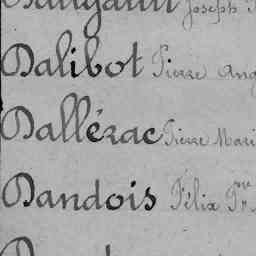 Joseph
Dalibot Pierre Ang
Dallérac Pierre Mari
Dandois Félix Pre